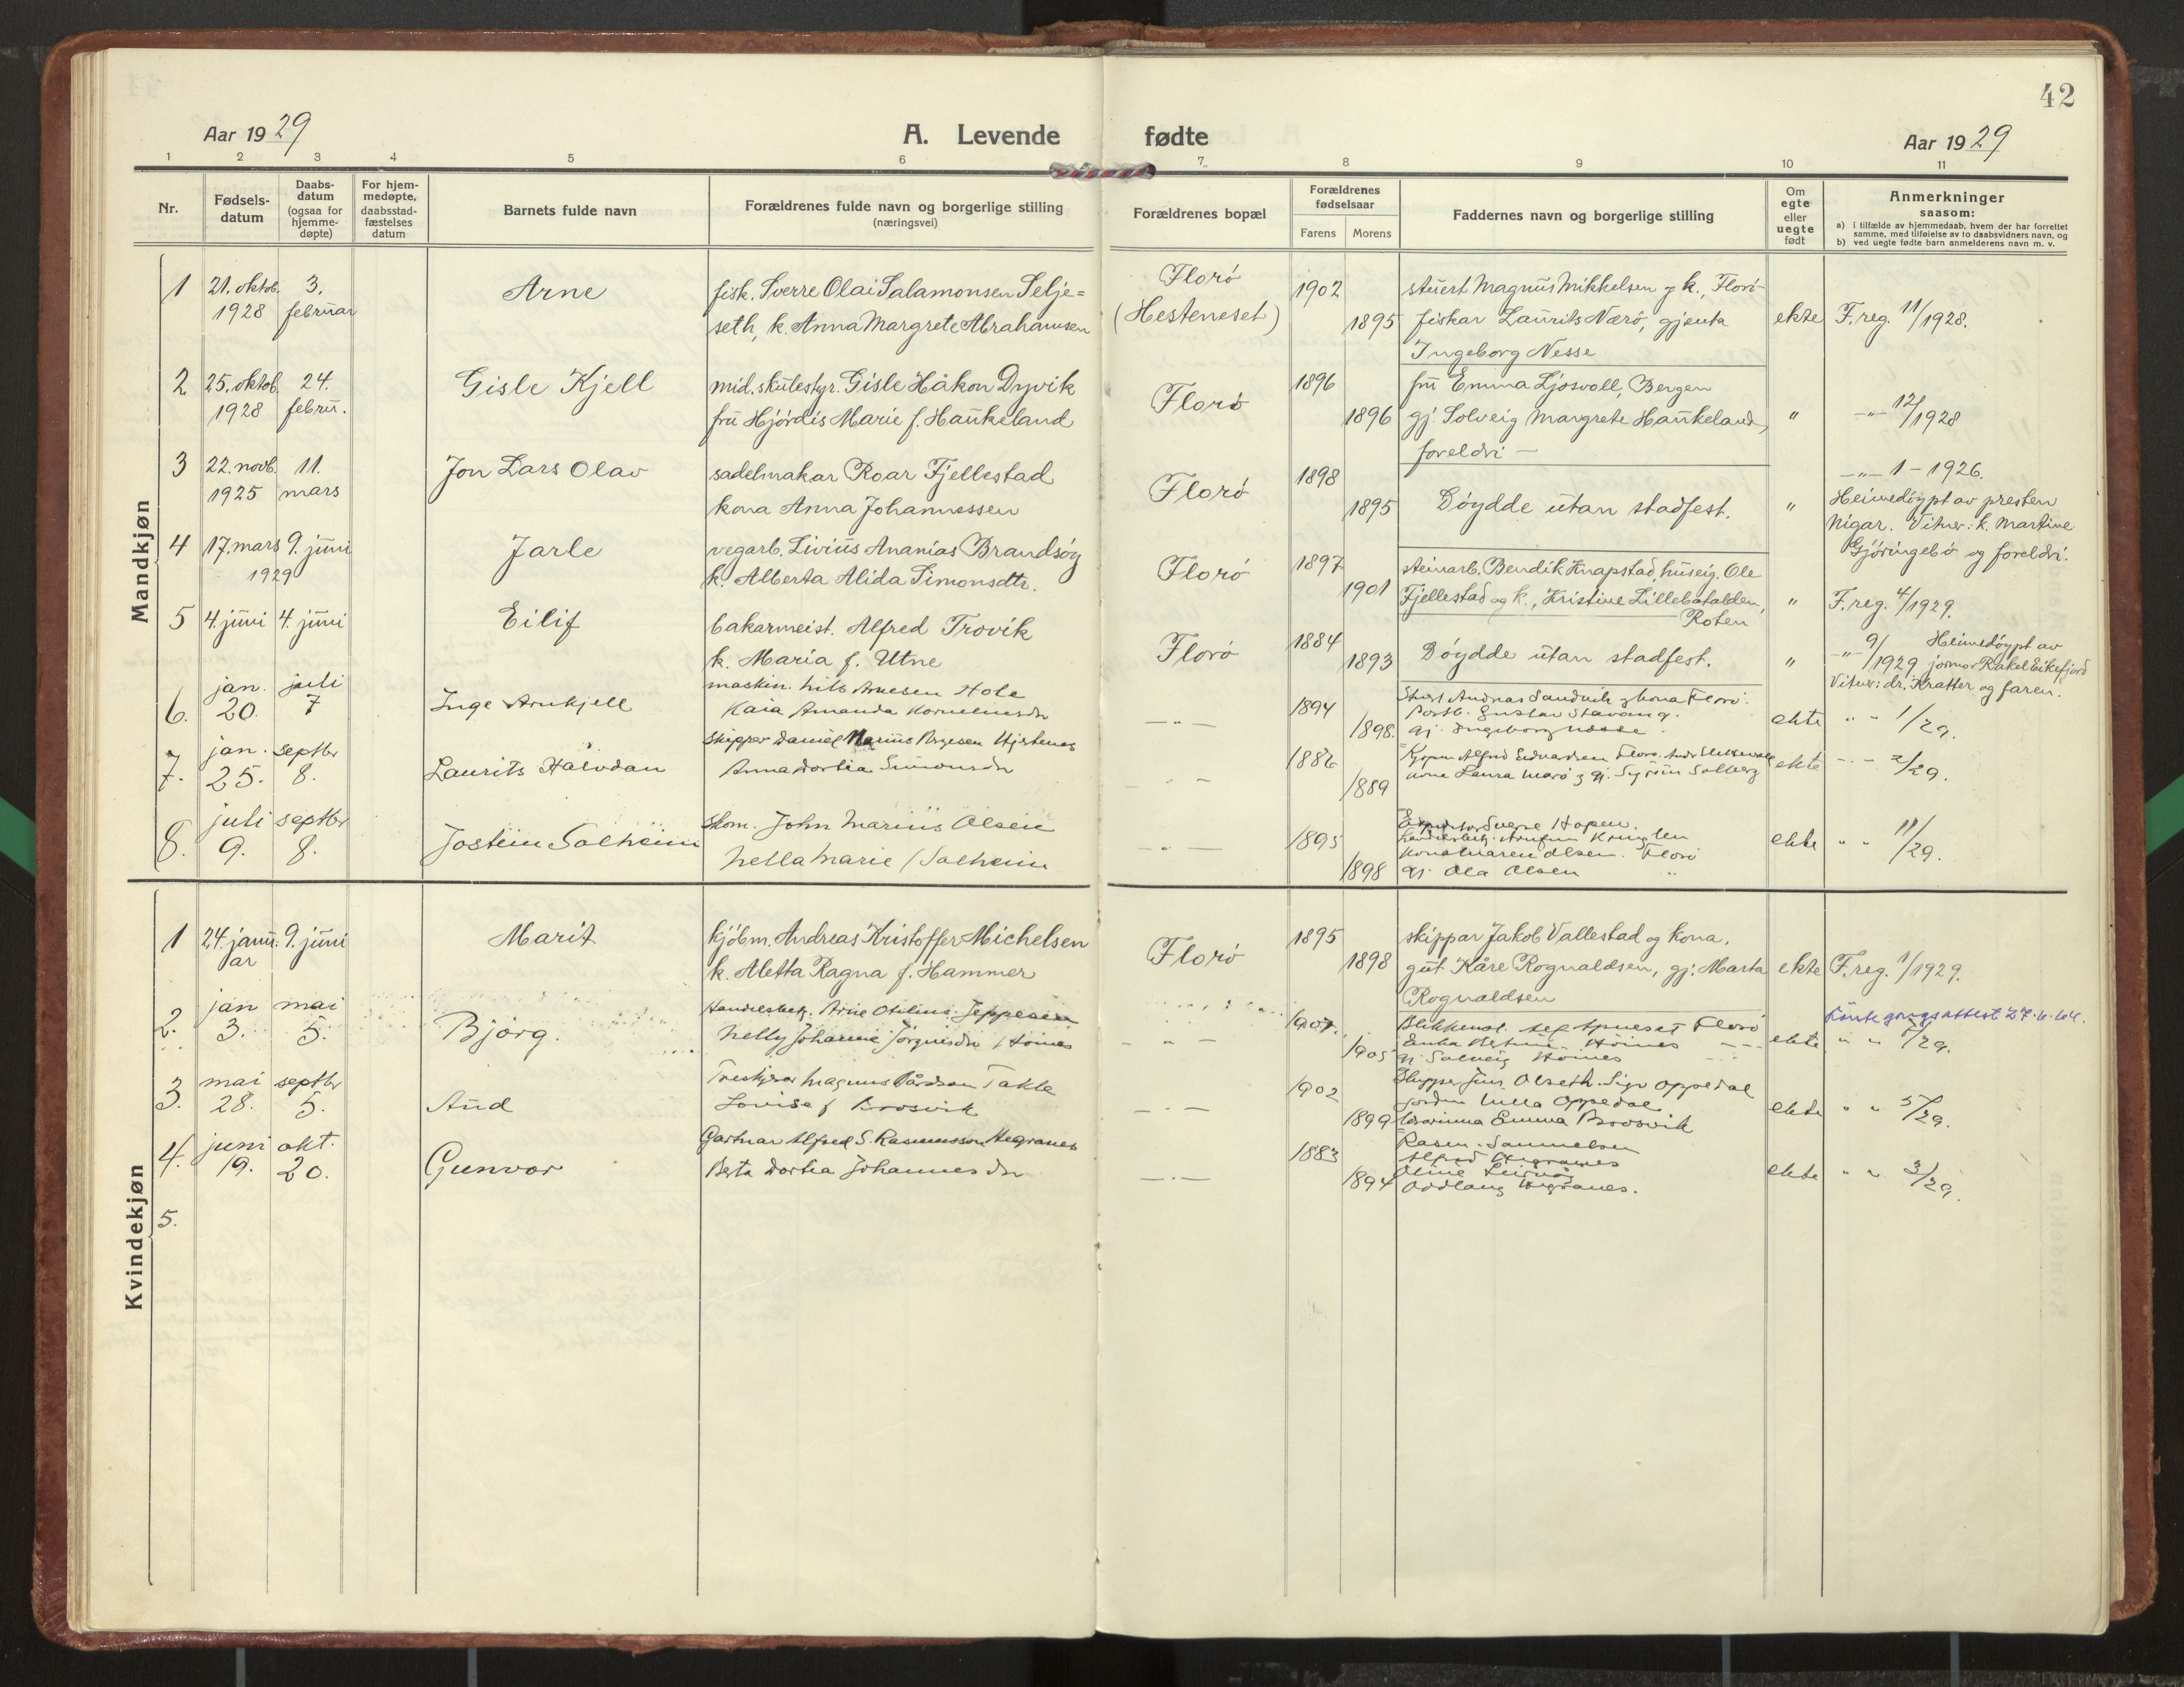 42
Aar 1929
A. Levende fødte
Aar 1929
1 2 3 4 5 6 7 8 9 10 11
Nr.
Fødsels-
datum
Daabs-
datum
(ogsaa for
hjemme-
døpte)
For hjem-
medøpte,
daabsstad-
fæstelses
datum
Barnets fulde navn
Forældrenes fulde navn og borgerlige stilling
(næringsvei)
Forældrenes bopæl
Forældrenes
fødselsaar
Farens Morens
Faddernes navn og borgerlige stilling
Om
egte
eller
uegte
født
Anmerkninger
saasom:
a) i tilfælde av hjemmedaab, hvem der har forrettet
samme, med tilføielse av to daabsvidners navn, og
b) ved uegte fødte barn anmelderens navn m. v.
Mandkjøn
1 21. oktob. 3.
1928 februar
Arne
fisk. Sverre Olai Salamonsen Selje=
seth, k. Anna Margrete Abrahamsen
Florø
(Hesteneset)
1902
1895
stuert Magnus Mikkelsen og k., Florø
fiskar Laurits Nærø, gjenta
Ingeborg Nesse
ekte
F. reg. 11/1928.
2 25. oktob. 24.
1928 febru.
Gisle Kjell
mid. skulestyr. Gisle Håkon Dyvik
fru Hjørdis Marie f. Haukeland
Florø
1896
1896
fru Emma Ljosvoll, Bergen
gj. Solveig Margrete Haukeland,
foreldri —
"
—"— 12/1928
3 22. novb. 11.
1925 mars
Jon Lars Olav
sadelmakar Roar Fjellestad
kona Anna Johannessen
Florø
1898
1895
Døydde utan stadfest.
"
—"— 1 – 1926.
Heimedøypt av presten
Nigar. Vitner: k. Martine
Gjøringebø og foreldri.
4 17. mars 9. juni
1929
Jarle
vegarb. Livius Ananias Brandsøy
k. Alberta Alida Simonsdtr.
Florø
1897
1901
steinarb. Bendik Knapstad, huseig. Ole
Fjellestad og k., Kristine Lillebatalden,
Roten
"
F. reg. 4/1929.
5 4. juni 4. juni
Eilif
bakarmeist. Alfred Trovik
k. Maria f. Utne
Florø
1884
1893
Døydde utan stadfest.
"
—"— 9/1929 Heimedøypt av
jormor Rakel Eikefjord
Vitner: dr. Kratter og faren.
6. jan. juli
20. 7
Inge Arnkjell
maskin. Nils Arnesen Hole
Kaia Amanda Korneliusdr
—"—
1894
1898.
Stuert Andreas Sandvik og kona Florø.
Postb. Gustav Stavang.
gj. Ingeborg Nesse.
ekte
" " 1/29.
7. jan. septbr
25. 8.
Laurits Halvdan
Skipper Daniel Marius
Anna Dortea Simonsdr
—"—
1886
1889
Kjøpm Alfred Edvardsen Florø.
kona Laura Nærø og gj. Solberg
ekte
—"— 2/29.
8. juli septbr
9. 8.
Jostein Solheim
Skom. John Marius Olsen
Nella Marie f Solheim
—"—
1895
1898
Sverre Hopen.
kona Maren Olsen. Florø
gj. Ola Olsen "
ekte
" " 11/29.
Kvindekjøn
1 24. janu- 9. juni
ar
Marit
kjøbm. Andreas Kristoffer Michelsen
k. Aletta Ragna f. Hammer
Florø
1895
1898
skippar Jakob Vallestad og kona,
gut. Kåre Rognaldsen, gj. Marta
Rognaldsen
ekte
F. reg. 1/1929.
2. jan mai
3. 5.
Bjørg.
Handelsbetj. Arne Otilius Jeppesen
Nelly Johanne Jørginsdr Høines
—"—
1907.
1905
Florø
Høines
gj. Solveig Høines
ekte
27.6.64.
" " 1/29.
3. mai septbr
28. 5.
Aud
Magnus Bårdsen Takle
Lovise f Brosvik
—"—
1902
1899
Jens Olseth. Sign Oppedal
Oppedal
Lærarinna Emma Brosvik
ekte
" " 5/29.
4. juni okt.
19. 20.
Gunvor
Gartnar Alfred S. Rasmusson Hegranes
Berta Dortea Johannesdr
—"—
1883
1894
Rasm. Samuelsen
Alfred Hegranes
Oddlaug Hegranes.
ekte
" " 3/29.
5.